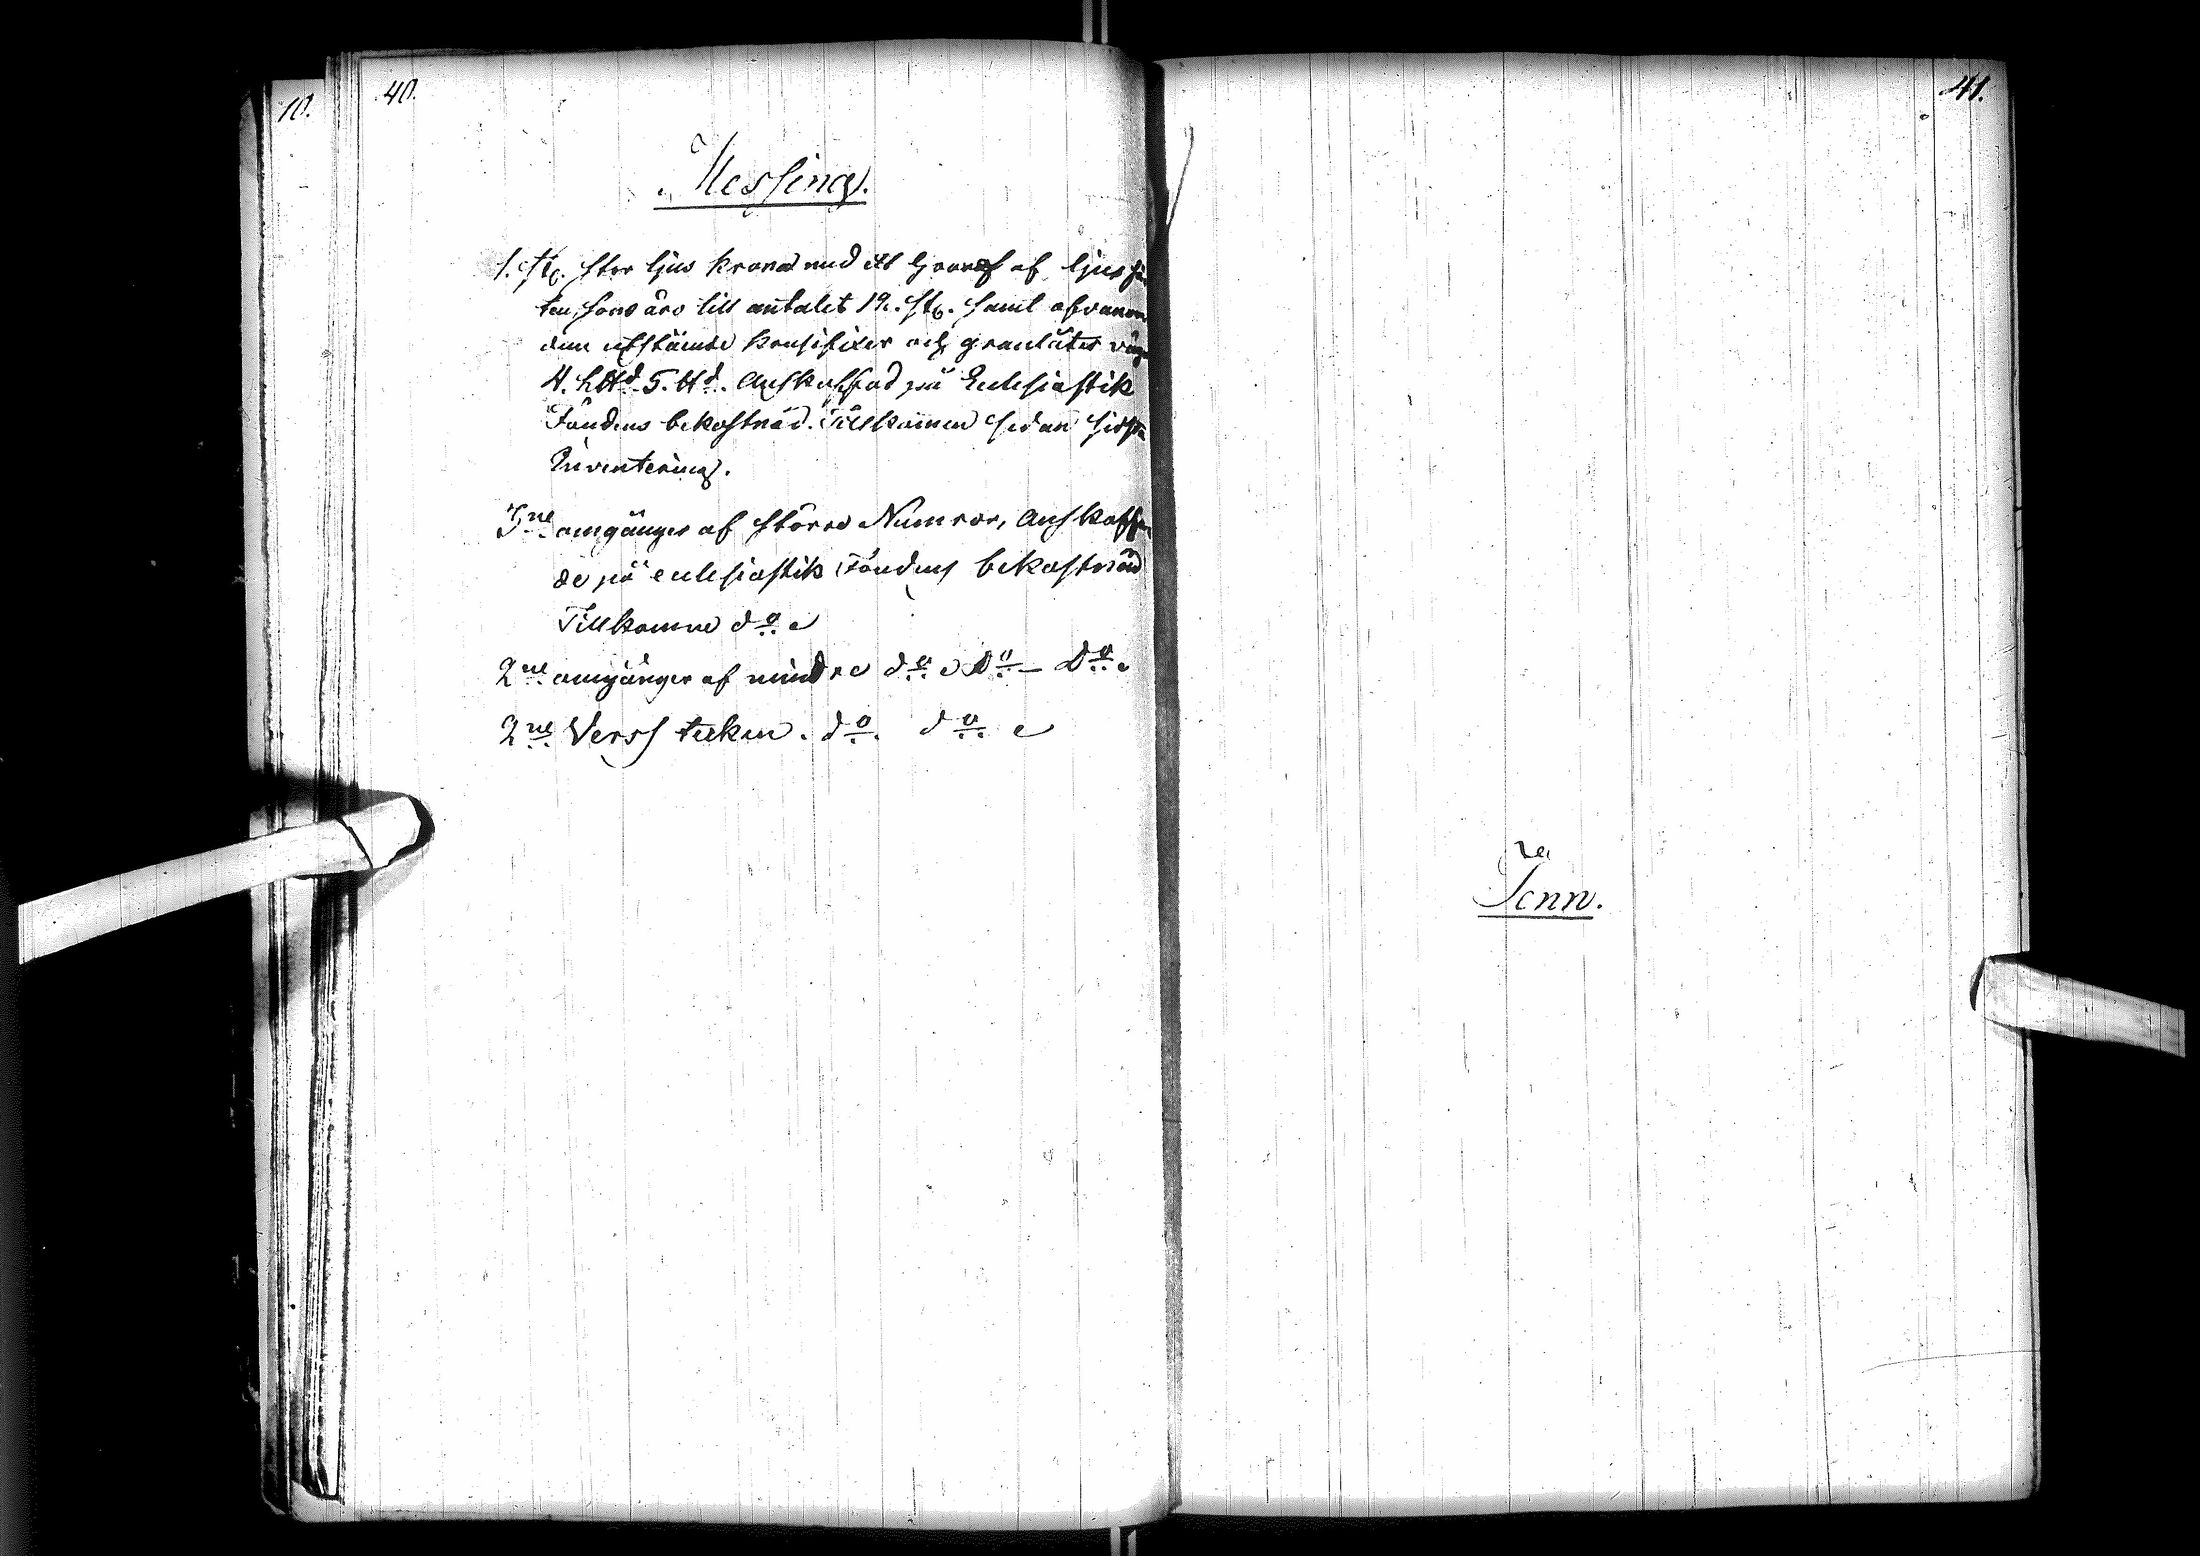 10.
40.
Messing.
1. st. stor ljus krona med ett af ljus
ten, som äro till antalet 12. st. samt ofvanom
dem krusifixer och
4. L℔d 5. ℔d. Anskaffad på Eclesiastik
Fondens bekostnad. Tillkommen sedan sidsta
Inventering.
3ne omgånger af större Numror, Anskaff
de på eclesiastik Fondens bekostnad
Tillkomne do
2ne omgånger af mindre do Do – Do
2ne Vers tecken. do. do
41.
Tenn.